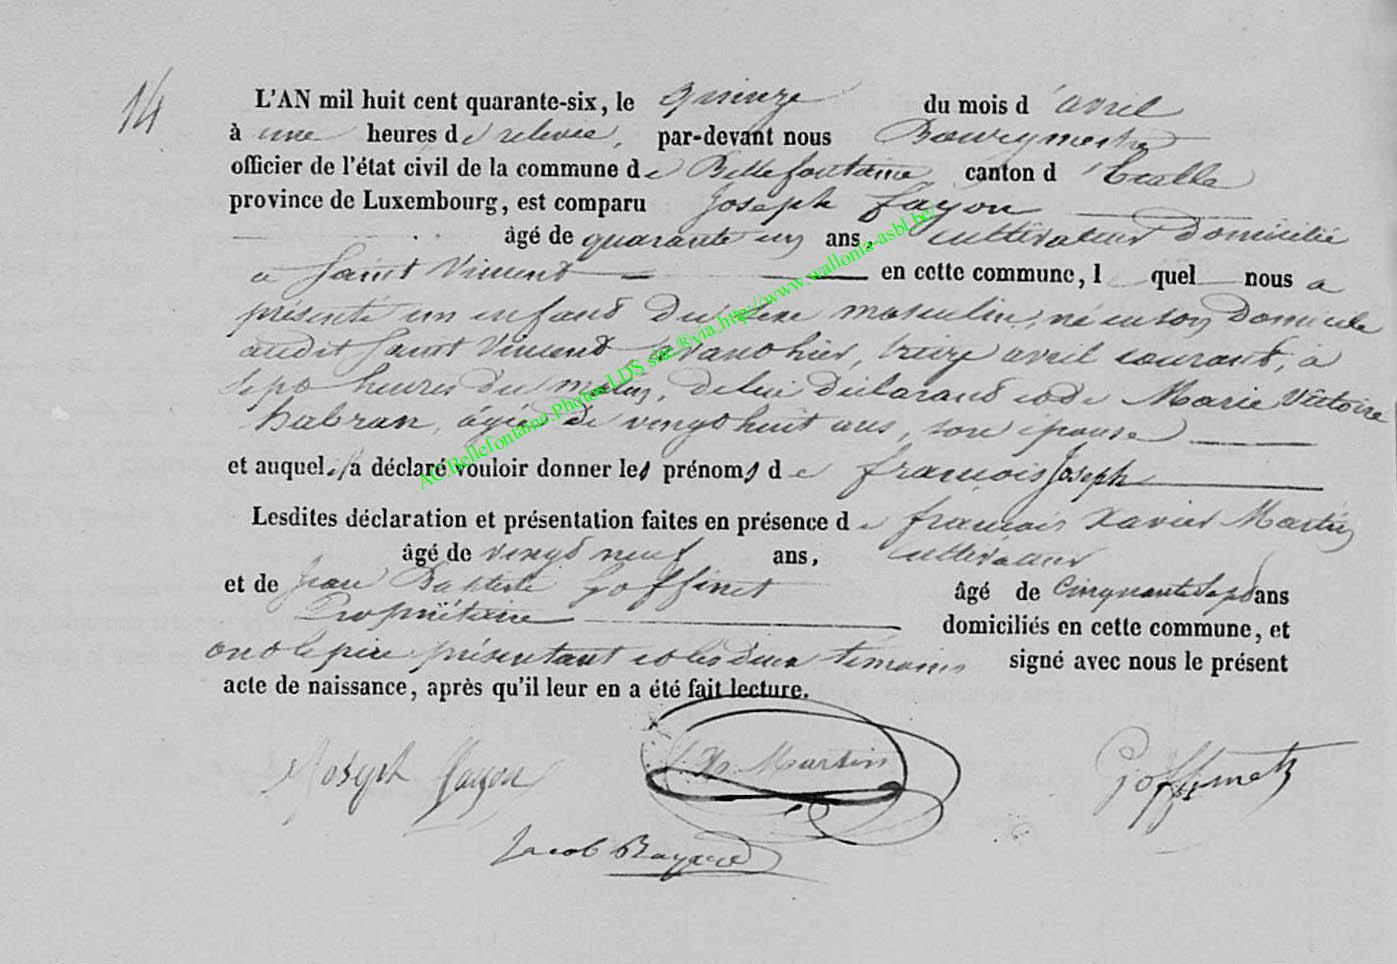 14
L'AN mil huit cent quarante-six, le quinze du mois d'avril
à une heures de relevée, par-devant nous Bourgmestre
officier de l'état civil de la commune de Bellefontaine canton d'Etalle
province de Luxembourg, est comparu Joseph fayon
âgé de quarante un ans, cultivateur domicilié
a Saint Vincent en cette commune, l quel nous a
présenté un enfant du sexe masculin, né en son domicile
audit Saint Vincent avant hier, treize avril courant, à
sept heures du matin, de lui déclarant et de Marie Victoire
habran, âgée de vingt huit ans, son épouse
et auquel il a déclaré vouloir donner les prénoms de françois Joseph
Lesdites déclaration et présentation faites en présence de françois Xavier Martin
âgé de vingt neuf ans, cultivateur
et de Jean Baptiste Goffinet âgé de cinquante sept ans
Propriétaire domiciliés en cette commune, et
ont le père présentant et les deux témoins signé avec nous le présent
acte de naissance, après qu'il leur en a été fait lecture.
Joseph fayon Martin Goffinet
Jacob
AC Bellefontaine.Photos LDS site ® via http://www.wallonia-asbl.be/